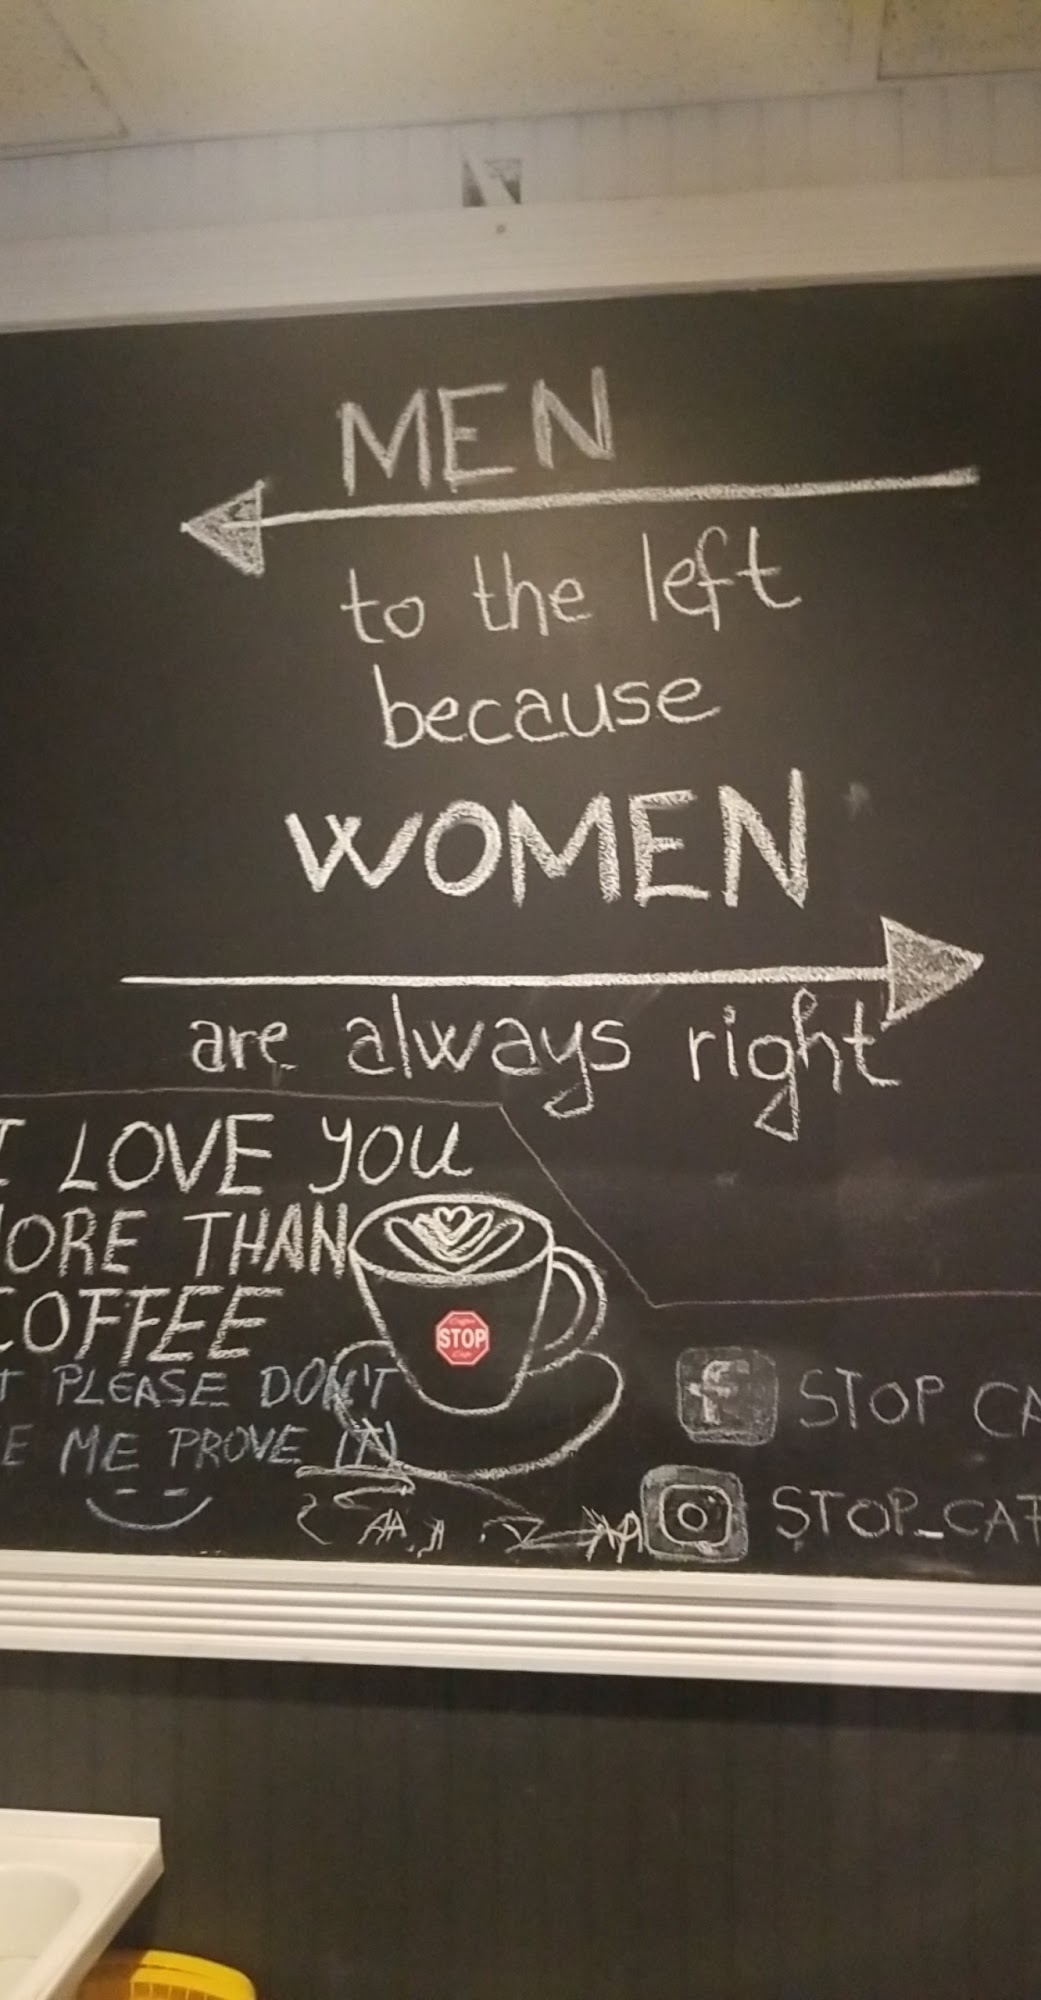 MEN
to the left
because
WOMEN
are always right
I LOVE YOU
MORE THAN
COFFEE
PLEASE DON'T
ME PROVE IT
STOP
STOP CA
STOP_CAF